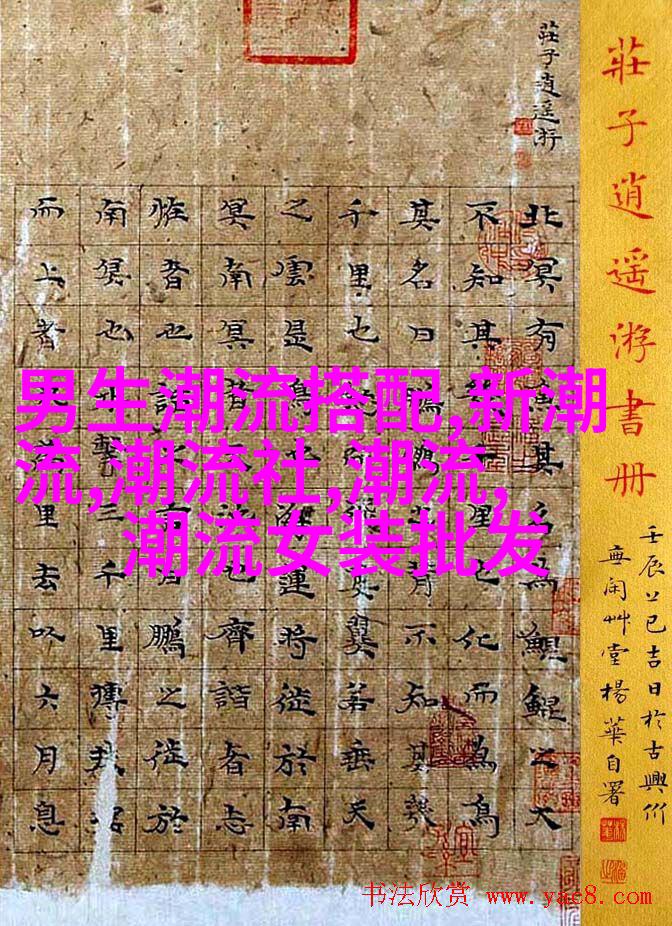 莊子逍遥游
北冥有魚其名為鯤鯤之大
不知其里也化而為鳥
其名曰鵬之背不知其幾
千里也飛其翼若垂天
之雲是鳥也海運將徙於南
冥南冥者也齊諧者志
怪者也諧之曰鵬之徙於
南冥也擊三千里摶扶搖
而上者里去以六月息
莊子逍遥游書册
壬辰年已吉日於古興竹
無闲艸堂楊華自署
男生潮流搭配,新潮
流,潮流社,潮流,
潮流女装批发
书法欣赏 www.yac8.com